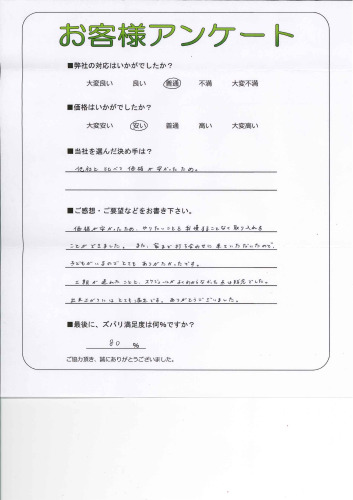 お客様アンケート
■弊社の対応はいかがでしたか?
大変良い 良い 普通 不満 大変不満
■価格はいかがでしたか?
大変安い 安い 普通 高い 大変高い
■当社を選んだ決め手は?
他社と比べて価格が安かったため。
■ご感想・ご要望などをお書き下さい。
価格が安かったため、やりたいことをお得することなく取り入れる
ことができました。また、家まで打ち合わせに来ていただいたので、
子どもがいるのでとてもありがたかったです。
工期が遅れたことと、スケジュールがよくわからなかった点は残念でした。
出来上がりにはとても満足です。ありがとうございました。
■最後に、ズバリ満足度は何%ですか?
80 %
ご協力頂き、誠にありがとうございました。